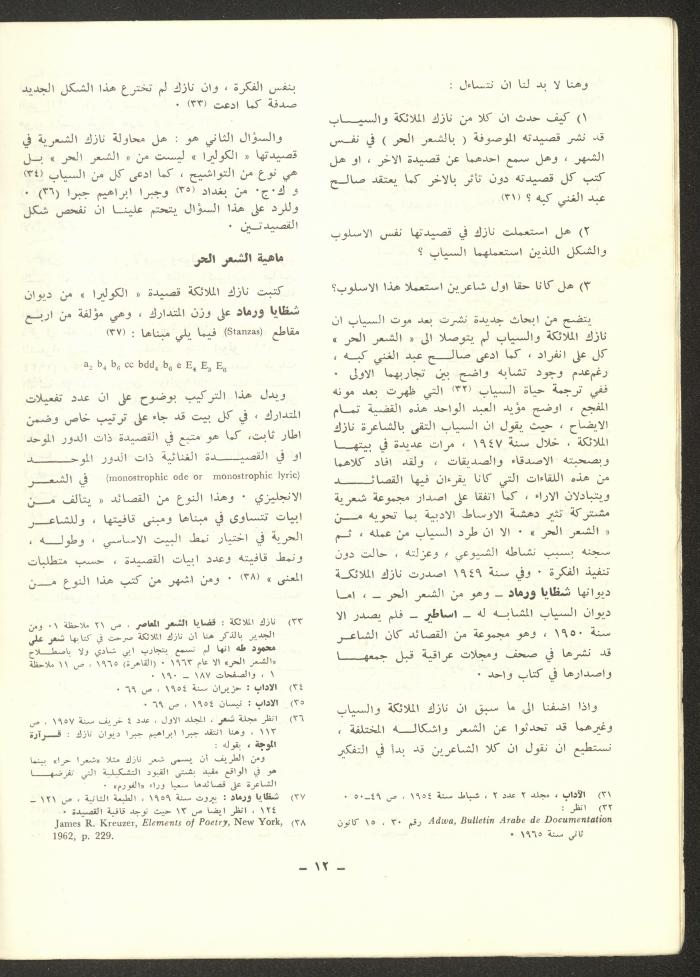 وهنا لا بد لنا ان نتساءل :
١) كيف حدث ان كلا من نازك الملائكة والسيــاب
قد نشر قصيدته الموصوفة ( بالشعر الحر ) في نفــس
الشهر ، وهل سمع احدهما عن قصيدة الاخر ، او هل
كتب كل قصيدته دون تاثر بالاخر كما يعتقد صالــح
عبد الغني كبه ؟ (٣١)
٢) هل استعملت نازك في قصيدتها نفس الاسلوب
والشكل اللذين استعملهما السياب ؟
٣) هل كانا حقا اول شاعرين استعملا هذا الاسلوب؟
يتضح من ابحاث جديدة نشرت بعد موت السياب ان
نازك الملائكة والسياب لم يتوصلا الى « الشعر الحر »
كل على انفراد ، كما ادعى صالـــح عبد الغني كبـه ،
رغم‌عدم وجود تشابه واضح بين تجاربهما الاولى .
ففي ترجمة حياة السياب (٣٢) التي ظهرت بعد موته
المفجع ، اوضح مؤيد العبد الواحد هذه القضية تمــام
الايضاح ، حيث يقول ان السياب التقى بالشاعرة نازك
الملائكة ، خلال سنة ١٩٤٧ ، مرات عديدة في بيتهــا
وبصحبته الاصدقاء والصديقات ، ولقد افاد كلاهما
من هذه اللقاءات التي كانا يقرءان فيها القصائــــد
ويتبادلان الاراء ، كما اتفقا على اصدار مجموعة شعرية
مشتركة تثير دهشة الاوساط الادبية بما تحويه مـــن
« الشعر الحر » . الا ان طرد السياب من عمله ، ثــم
سجنه بسبب نشاطه الشيوعي ، وعزلته ، حالت دون
تنفيذ الفكرة . وفي سنة ١٩٤٩ اصدرت نازك الملائكـة
ديوانها شظايا ورماد ــ وهو من الشعر الحر ــ ، امـا
ديوان السياب المشابـه له ــ اساطير ــ فلم يصدر الا
سنة ١٩٥٠ ، وهو مجموعة من القصائد كان الشاعـر
قد نشرها في صحف ومجلات عراقية قبل جمعهـــا
واصدارها في كتاب واحد .
واذا اضفنا الى ما سبق ان نازك الملائكة والسياب
وغيرهما قد تحدثوا عن الشعر واشكالـــه المختلفة ،
نستطيع ان نقول ان كلا الشاعرين قد بدأ في التفكير
(٣١ الآداب ، مجلد ٢ عدد ٢ ، شباط سنة ١٩٥٤ ، ص ٤٩ــ٥٠ .
(٣٢ انظر :
Adwa, Bulletin Arabe de Documentation رقم ٣٠ ، ١٥ كانون
ثاني سنة ١٩٦٥ .
بنفس الفكرة ، وان نازك لم تخترع هذا الشكل الجديد
صدفة كما ادعت (٣٣) .
والسؤال الثاني هو : هل محاولة نازك الشعرية في
قصيدتها « الكوليرا » ليست من « الشعر الحر » بــل
هي نوع من التواشيح ، كما ادعى كل من السياب (٣٤)
و ك.ج. من بغداد (٣٥) وجبرا ابراهيم جبرا (٣٦) .
وللرد على هذا السؤال يتحتم علينــا ان نفحص شكل
القصيدتــين .
ماهية الشعر الحر
كتبت نازك الملائكة قصيدة « الكوليرا » من ديوان
شظايا ورماد على وزن المتدارك ، وهي مؤلفة من اربــع
مقاطع (Stanzas) فيما يلي مبناها : (٣٧)
a₂ b₄ b₆ cc bdd₄ b₆ e E₄ E₃ E₆
ويدل هذا التركيب بوضوح على ان عدد تفعيلات
المتدارك ، في كل بيت قد جاء على ترتيب خاص وضمن
اطار ثابت، كما هو متبع في القصيدة ذات الدور الموحد
او في القصيــــدة الغنائية ذات الدور الموحــــــد
(monostrophic ode or monostrophic lyric) في الشعــر
الانجليزي . وهذا النوع من القصائد « يتالف مـــن
ابيات تتساوى في مبناها ومبنى قافيتها ، وللشاعــر
الحرية في اختيار نمط البيت الاساسي ، وطولــه ،
ونمط قافيته وعدد ابيات القصيدة ، حسب متطلبات
المعنى » (٣٨) . ومن اشهر من كتب هذا النوع مــن
(٣٣ نازك الملائكة : قضايا الشعر المعاصر ، ص ٢١ ملاحظة ١. ومن
الجدير بالذكر هنا أن نازك الملائكة صرحت في كتابها شعر علي
محمود طه انها لم تسمع بتجارب ابي شادي ولا باصطــلاح
«الشعر الحر» الا عام ١٩٦٣ . (القاهرة) ١٩٦٥ ، ص ١١ ملاحظة
١ ، والصفحات ١٨٧ ــ ١٩٠ .
(٣٤ الآداب : حزيران سنة ١٩٥٤ ، ص ٦٩ .
(٣٥ الآداب : نيسان ١٩٥٤ ، ص ٦٩ .
(٣٦ انظر مجلة شعر ، المجلد الاول ، عدد ٤ خريف سنة ١٩٥٧ ، ص
١١٣ ، وهنا انتقد جبرا ابراهيم جبرا ديوان نازك : قــرارة
الموجة ، بقوله :
ومن الطريف أن يسمى شعر نازك مثلا «شعرا حرا» بينما
هو في الواقع مقيد بشتى القيود التشكيلية التي تفرضهــا
الشاعرة على قصائدها سعيا وراء «الفورم» .
(٣٧ شظايا ورماد : بيروت سنة ١٩٥٩ ، الطبعة الثانية ، ص ١٢١ ــ
١٢٤ ، انظر ايضا ص ١٣ حيث توجد قافية القصيدة .
(٣٨ James R. Kreuzer, Elements of Poetry, New York,
1962, p. 229.
ــ ١٢ ــ